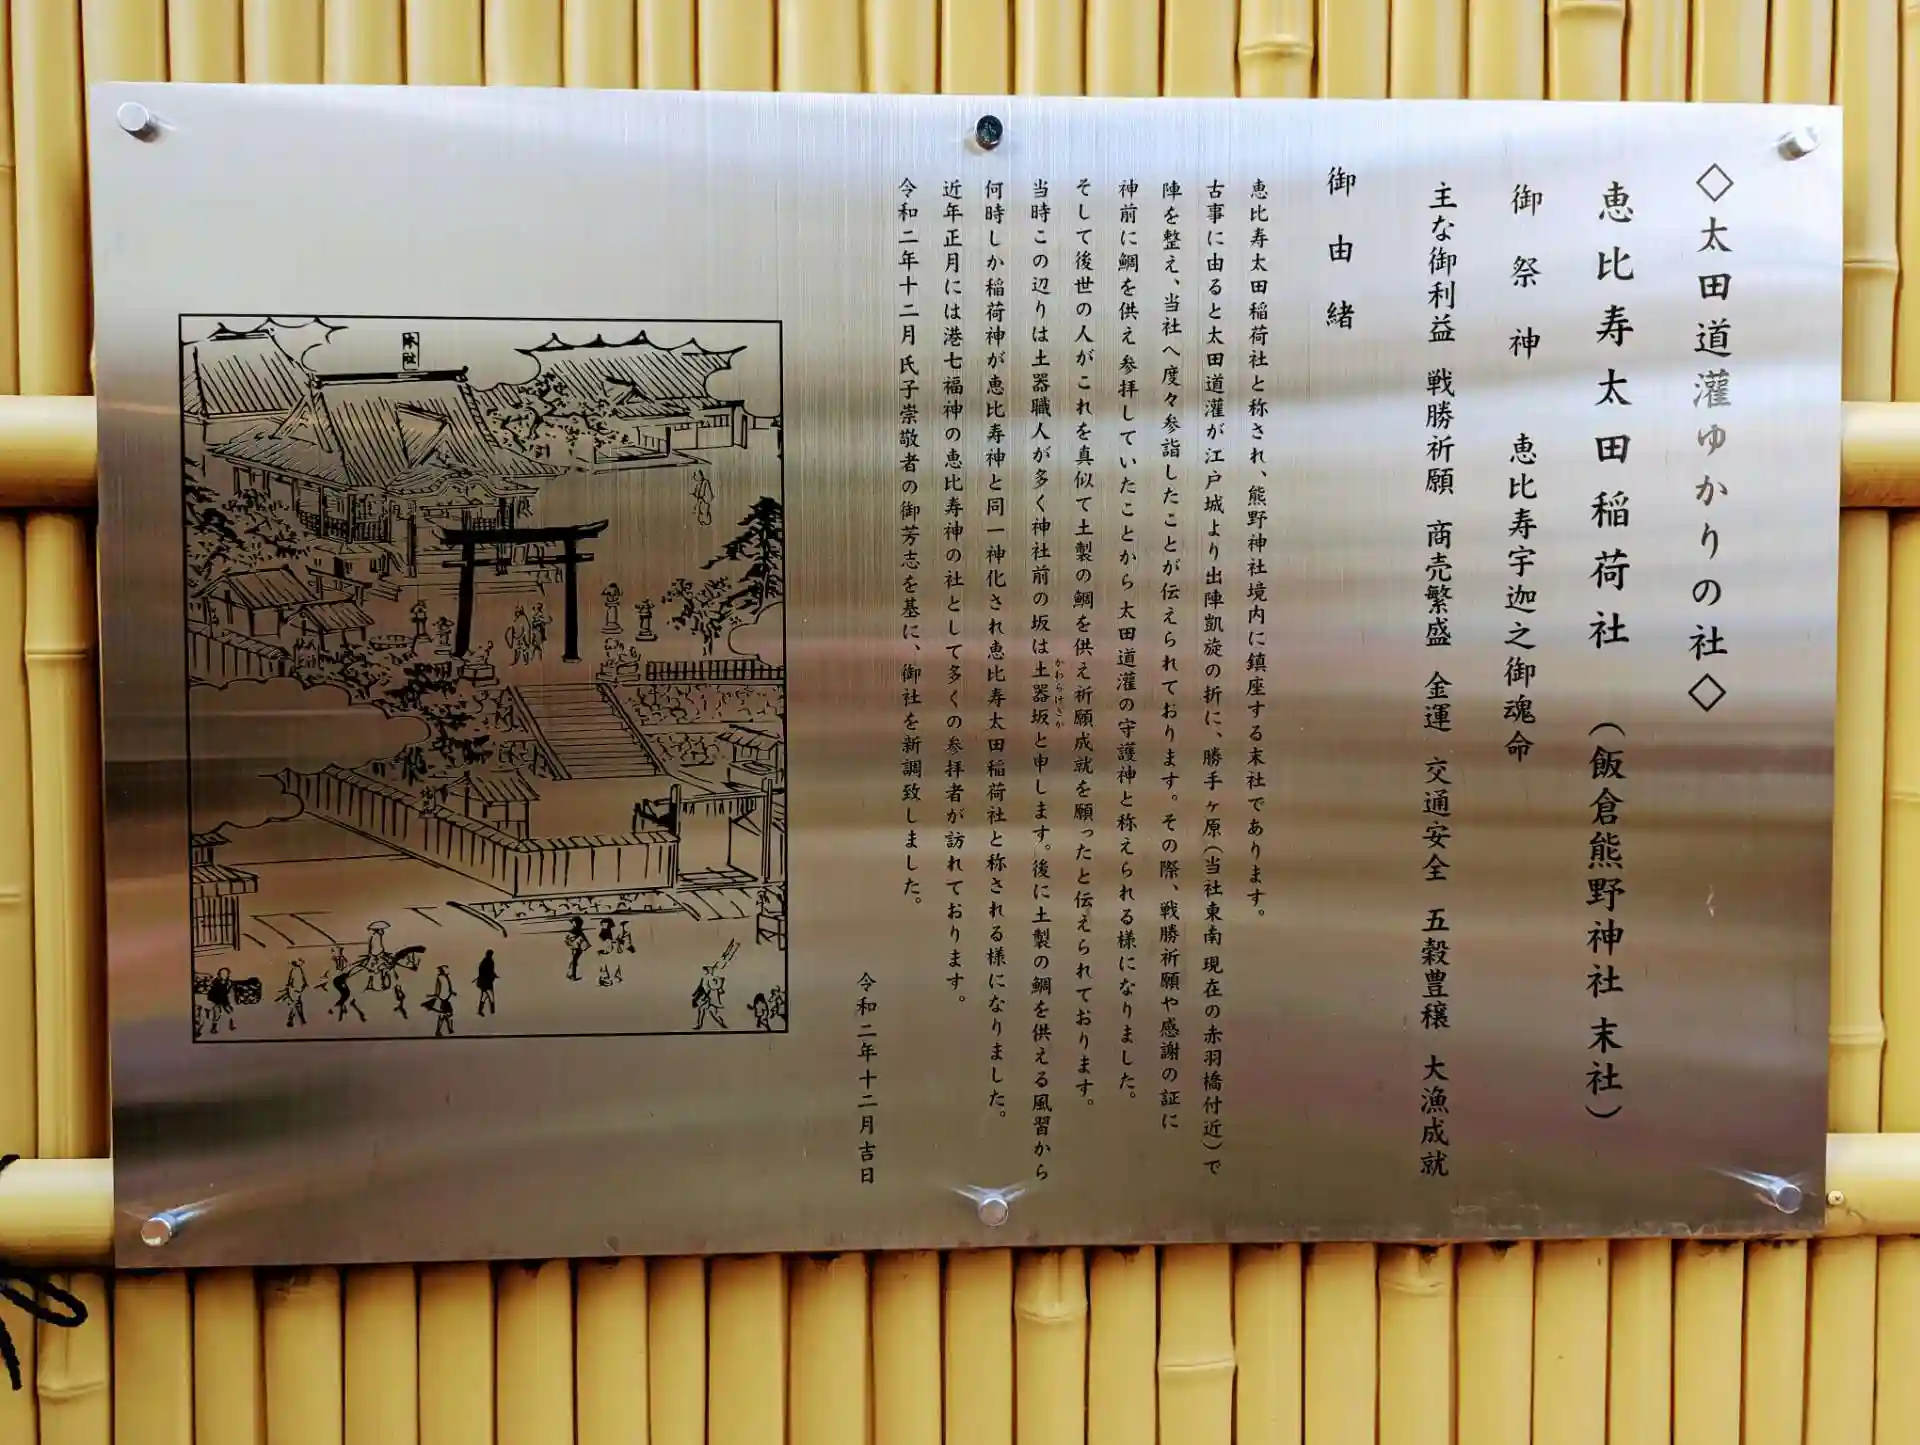 ◇太田道灌ゆかりの社◇
恵比寿太田稲荷社 （飯倉熊野神社 末社）
御祭神 恵比寿宇迦之御魂命
主な御利益 戦勝祈願 商売繁盛 金運 交通安全 五穀豊穣 大漁成就
御由緒
恵比寿太田稲荷社と称され、熊野神社境内に鎮座する末社であります。
古事に由ると太田道灌が江戸城より出陣凱旋の折に、勝手ヶ原（当社東南現在の赤羽橋付近）で
陣を整え、当社へ度々参詣したことが伝えられております。その際、戦勝祈願や感謝の証に
神前に鯛を供え参拝していたことから太田道灌の守護神と称えられる様になりました。
そして後世の人がこれを真似て土製の鯛を供え祈願成就を願ったと伝えられております。
当時この辺りは土器職人が多く神社前の坂は土器坂と申します。後に土製の鯛を供える風習から
かわらけざか
何時しか稲荷神が恵比寿神と同一神化され恵比寿太田稲荷社と称される様になりました。
近年正月には港七福神の恵比寿神の社として多くの参拝者が訪れております。
令和二年十二月氏子崇敬者の御芳志を基に、御社を新調致しました。
令和二年十二月吉日
本社